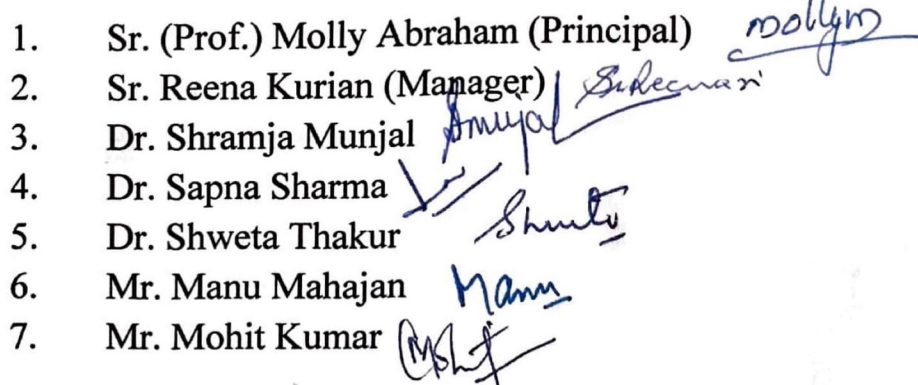 1. Sr. (Prof.) Molly Abraham (Principal) mollym
2. Sr. Reena Kurian (Manager)
3. Dr. Shramja Munjal
4. Dr. Sapna Sharma
5. Dr. Shweta Thakur
6. Mr. Manu Mahajan Manu
7. Mr. Mohit Kumar